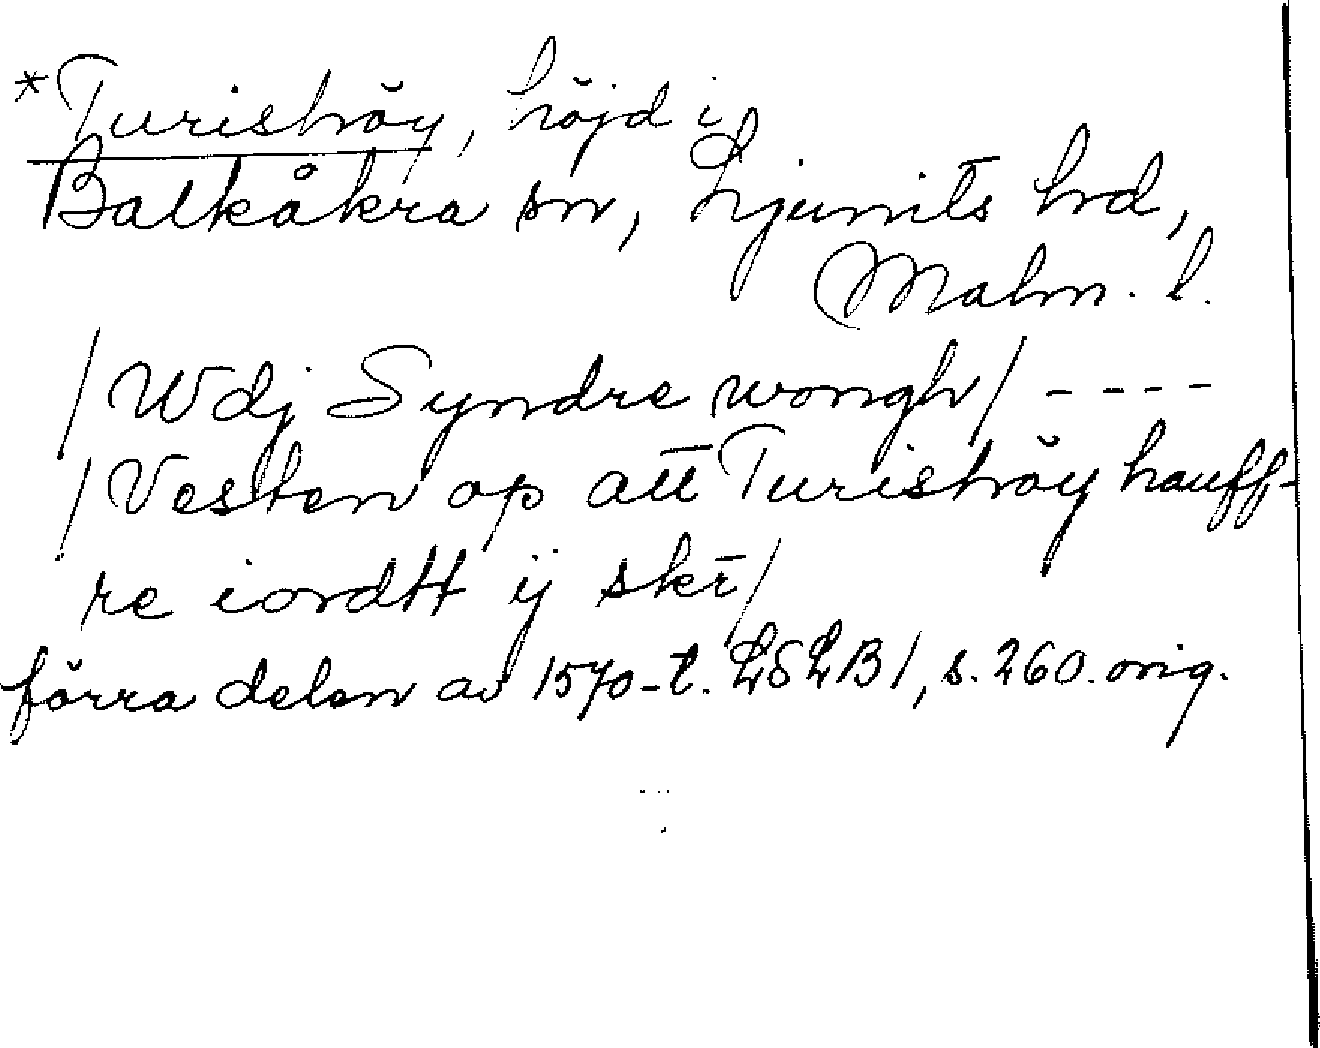 *Turishöy, höjd i
Balkåkra sn, Ljunits hd,
Malm. l.
/Wdj Syndre wongh/ ----
/Vesten op att Turishöy hauff-
re iordtt ij skr/
förra delen av 1570-t. LSLB1, s. 260. orig.